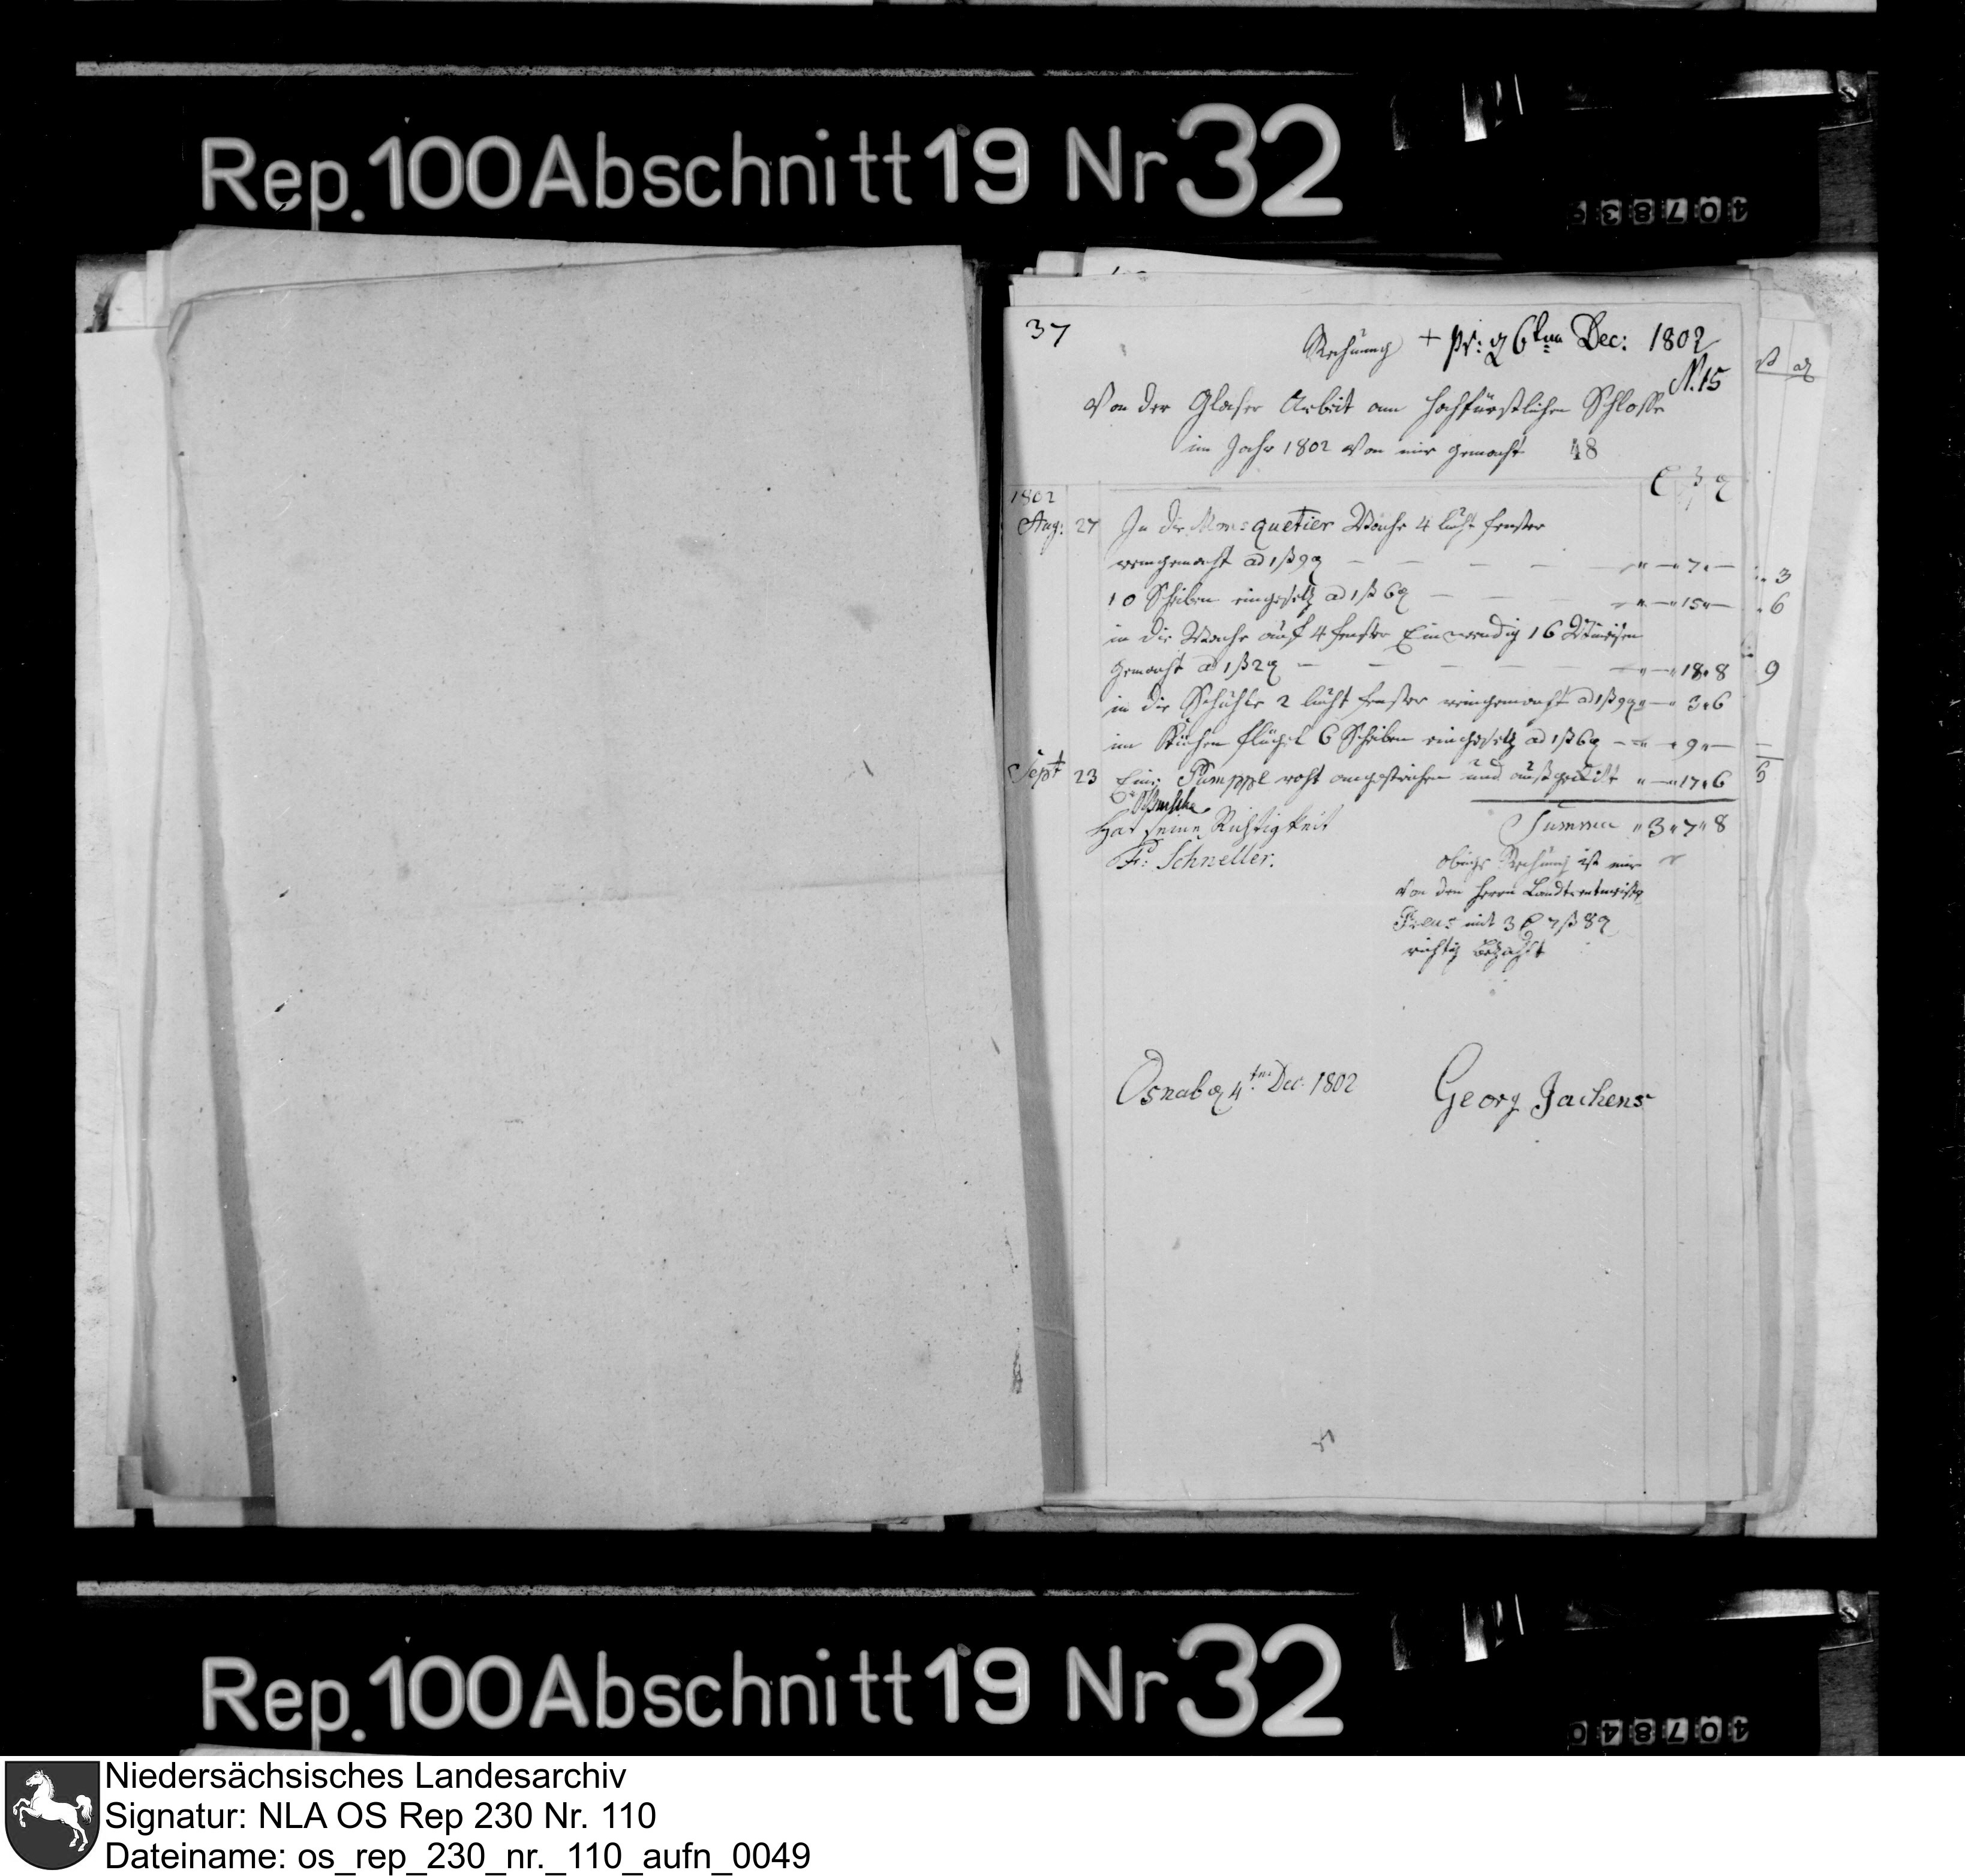 Rep. 100 Abschnitt 19 Nr 32
407839
37
Rechnung + pr: d 6ten Dec: 1802
N. 15
Von der Glaser Arbeit am Hochfürstlichen Schlosse
im Jahr 1802 Von mir gemacht 48
1802
Aug: 27 In die Mousquetier Wache 4 lucht fenster
reingemacht ad 1 ß 9 ₰ — — — — " — " 7 " —
10 Scheiben eingesetz ad 1 ß 6 ₰ — — — " — " 15 " —
in die Wache auf 4 fenster Einwendig 16
gemacht ad 1 ß 2 ₰ — — — — — " — " 18 " 8
in die Schuhle 2 lucht fenster reingemacht ad 1 ß 9 ₰ " — " 3 " 6
im Küchen flügel 6 Scheiben eingesetz ad 1 ß 6 ₰ — " — " 9 " —
Sept 23 Eine Pumppe roht angestrichen und
" — " 17 " 6
Hat seine Richtigkeit
Summa " 3 " 7 " 8
Fr: Schneller.
obige Rechnung ist mir
von den Herrn Landrentmeister
mit 3 7 ß 8 ₰
richtig bezahlt
Osnab d 4ten Dec. 1802
Georg Jackens
Rep. 100 Abschnitt 19 Nr 32
407840
Niedersächsisches Landesarchiv
Signatur: NLA OS Rep 230 Nr. 110
Dateiname: os_rep_230_nr._110_aufn_0049